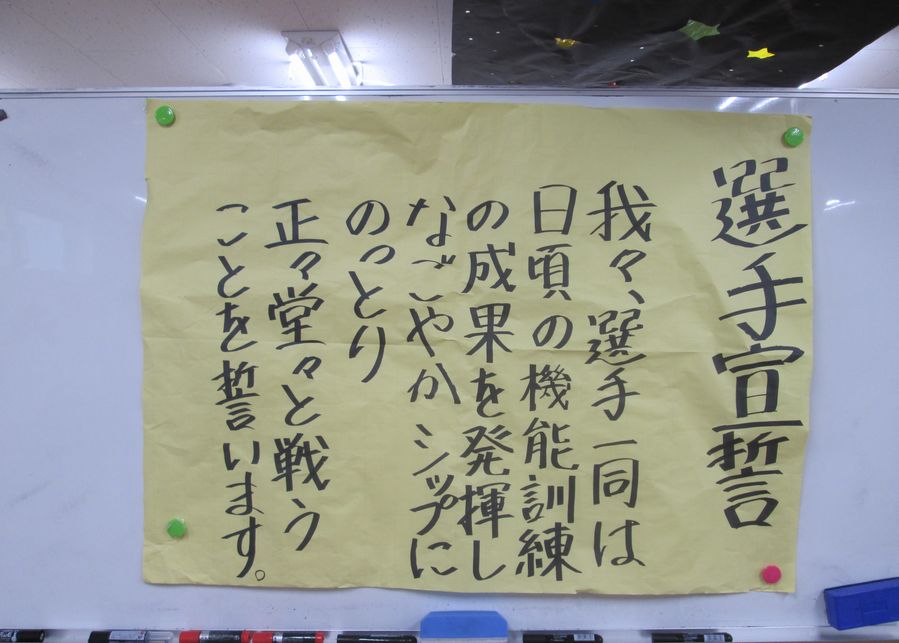 選手宣誓
我々、選手一同は
日頃の機能訓練
の成果を発揮し
なごやかシップに
のっとり
正々堂々と戦う
ことを誓います。